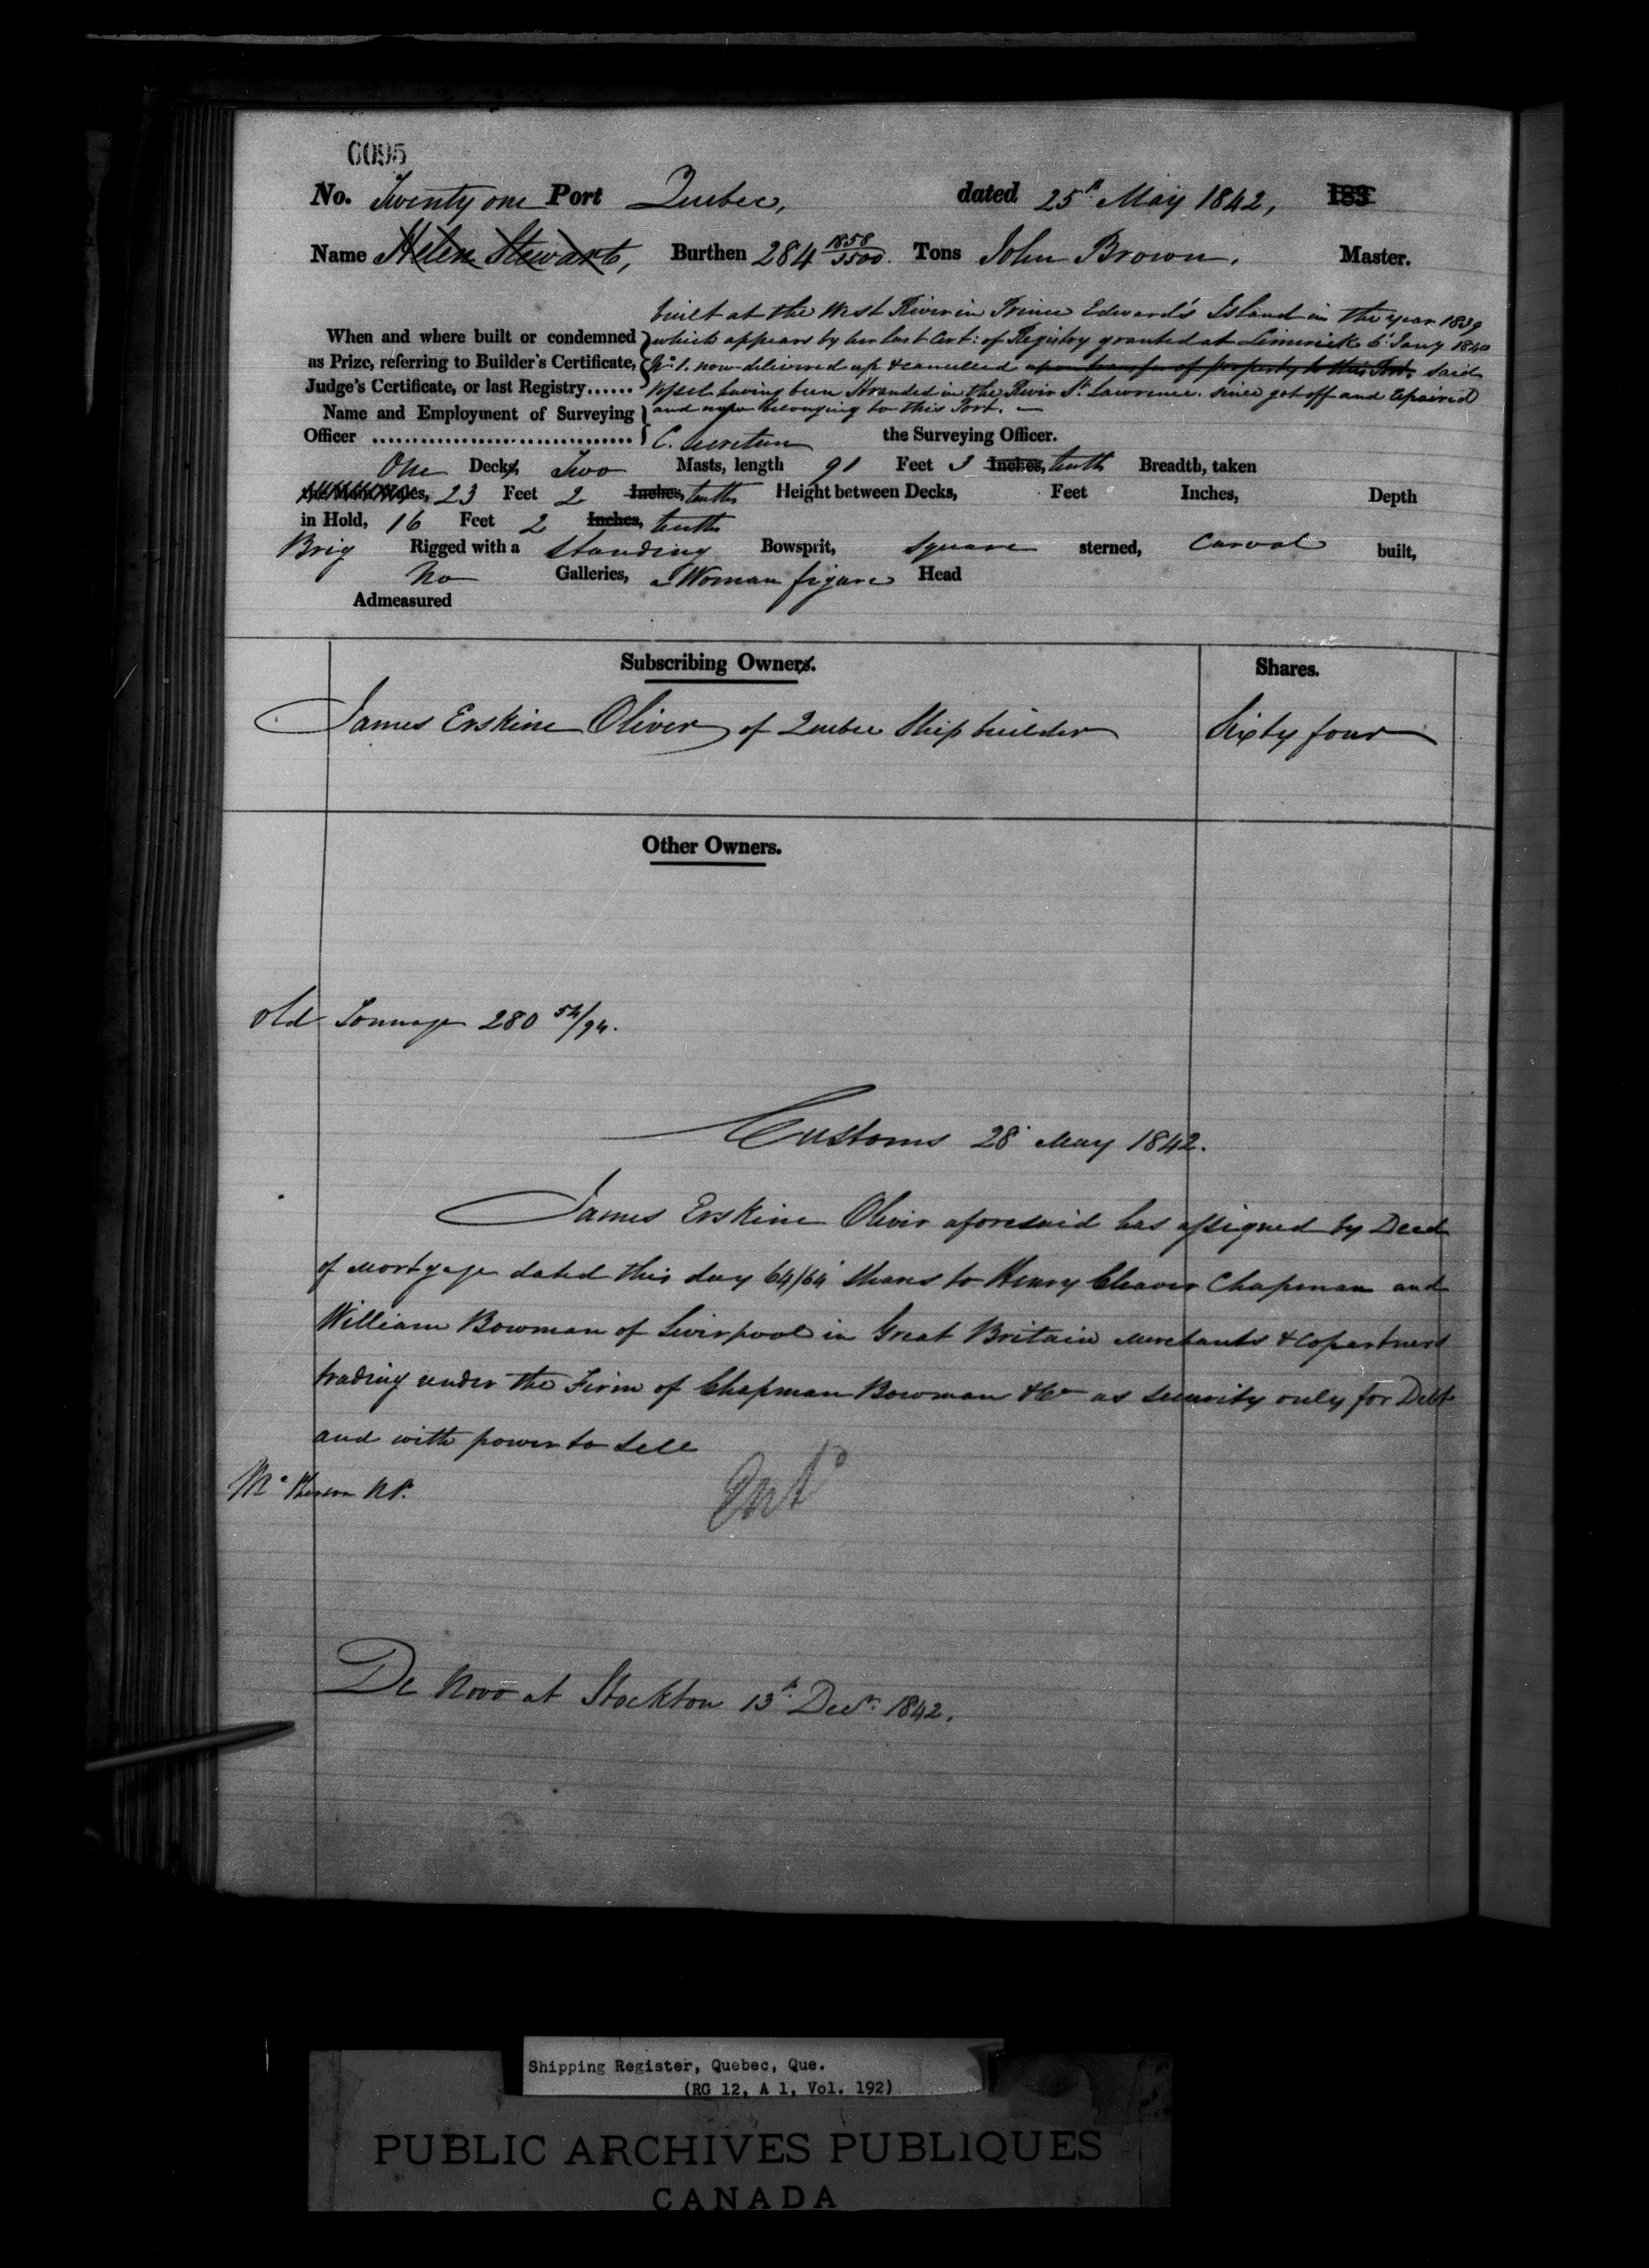 6095
No. Twenty one Port Quebec, dated 25th May 1842, 183
Name Helen Stewart, Burthen 284 1858/3500 Tons John Brown, Master.
built at the West River in Prince Edward's Island in the year 1839
When and where built or condemned which appears by her last Cert: of Registry granted at Limerick 6 Jany 1840
as Prize, referring to Builder's Certificate, No. 1. now delivered up & cancelled upon transfer of property to this Port, said
Judge's Certificate, or last Registry...... Vessel having been Stranded in the River St. Lawrence. since got off and repaired
Name and Employment of Surveying and now belonging to this Port.
Officer ................................ C. Secretan the Surveying Officer.
One Decks, Two Masts, length 91 Feet 3 Inches, tenths Breadth, taken
23 Feet 2 Inches, tenths Height between Decks, Feet Inches, Depth
in Hold, 16 Feet 2 Inches, tenths
Brig Rigged with a Standing Bowsprit, Square sterned, Carvel built,
No Galleries, a Woman figure Head
Admeasured
Subscribing Owners. Shares.
James Erskine Oliver of Quebec Ship builder Sixty four
Other Owners.
Old Tonnage 280 54/94.
Customs 28 May 1842.
James Erskine Oliver aforesaid has assigned by Deed
of Mortgage dated this day 64/64 Shares to Henry Cleaver Chapman and
William Bowman of Liverpool in Great Britain Merchants & Copartners
trading under the Firm of Chapman Bowman & Co as security only for Debt
and with power to sell
McPherson N.P.
Entd
De Novo at Stockton 13th Decr. 1842.
Shipping Register, Quebec, Que.
(RG 12, A 1, Vol. 192)
PUBLIC ARCHIVES PUBLIQUES
CANADA